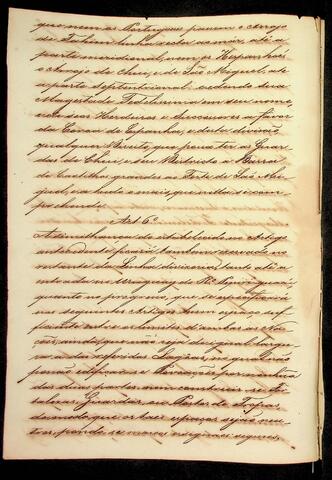 que, nem os Portuguezes passem o Arroyo
de Tahim linha recta ao mar, até a
parte meridional, nem os Hespanhoes
o Arroyo de Chui, e de São Miguel, até
a parte septentrional: cedendo sua
Magestade Fidelissima em seu nome,
e de seus Herdeiros e Successores a favor
da Corôa de Espanha, e desta divisão
qualquer Direito, que possa ter as Guar-
das de Chui, e seu Districto a Barra
de Castilhos grandes ao Forte de São Mi-
guel, e a tudo o mais, que nella se com-
prehende.
Art. 6.º
A similhança do estabelecido no Artigo
antecedente ficará tambem reservado no
restante da Linha divisoria, tanto até a
entrada no Uruguay do Rio
quanto no progresso, que se especificará
nos seguintes Artigos hum espaço suf-
ficiente entre os limites d'ambas as Na-
ções, ainda que não seja de igual largu-
ra a das referidas Lagôas, no qual não
poderão edificar-se Povoações por nenhuma
das duas partes nem construir-se For-
talezas, Guardas, ou Postos de Tropas,
de modo, que os taes espaços sejão neu-
tros, pondo-se marcos e signaes seguros,